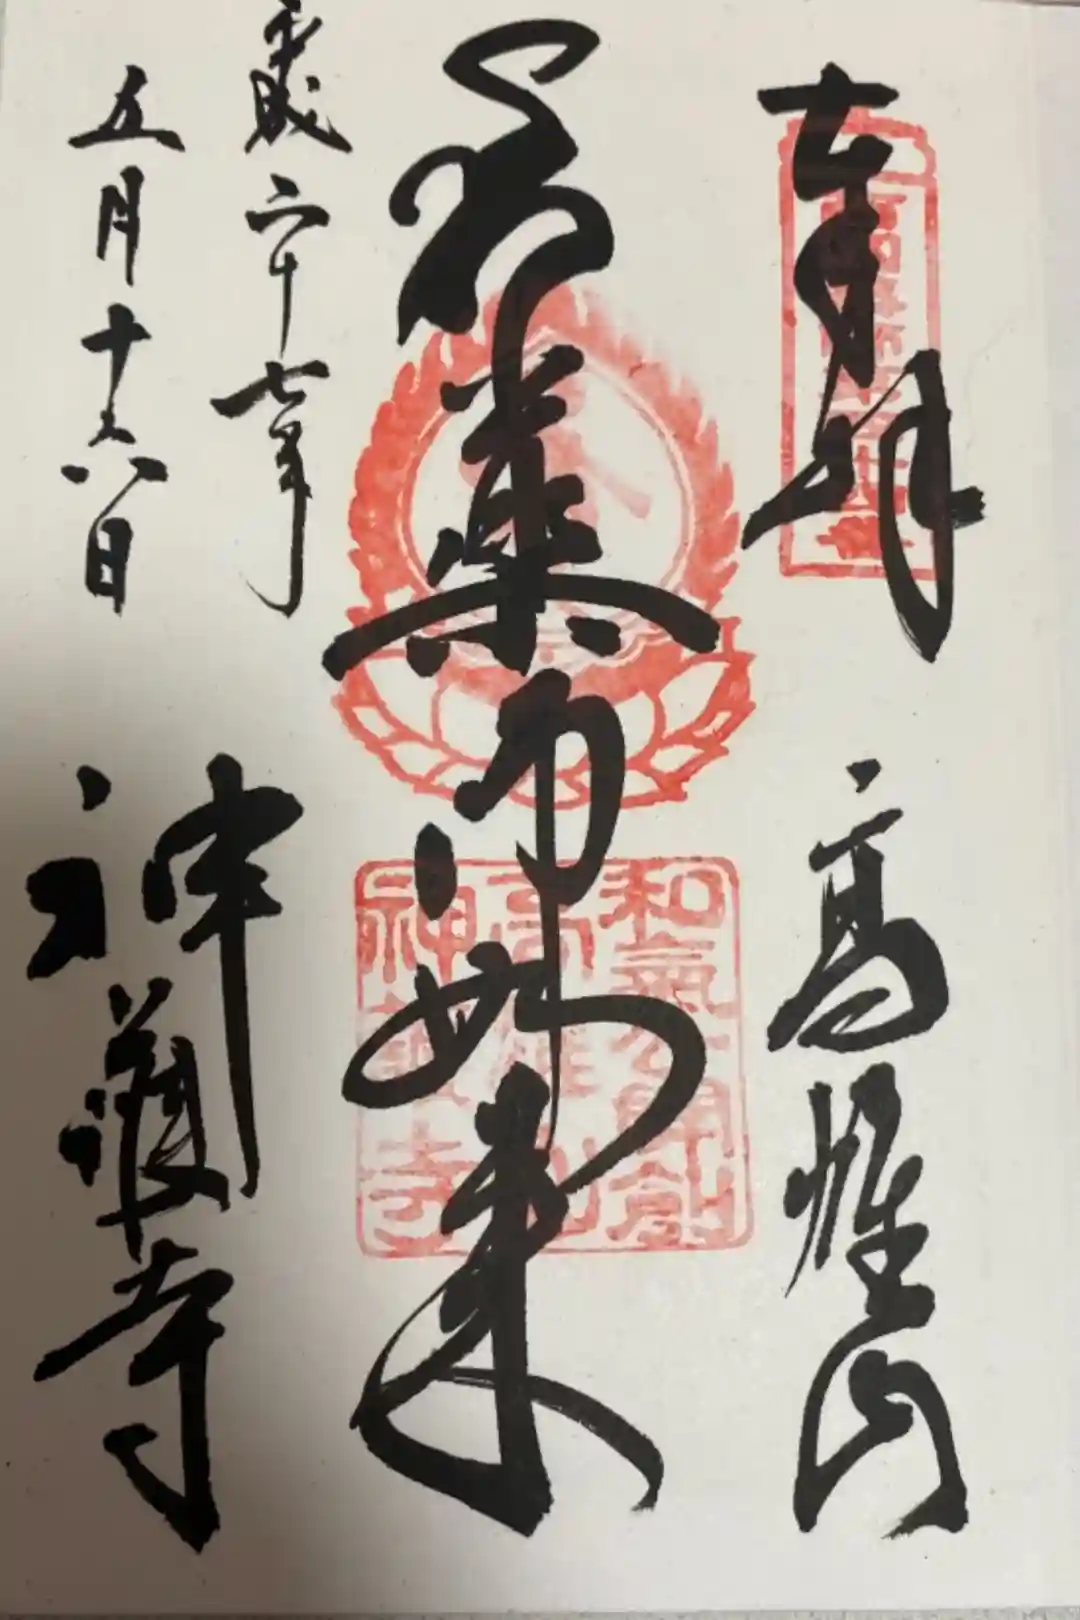 奉拝
高雄山
薬師如来
平成二十七年
五月十六日
神護寺
和氣公開創
高雄山
神護寺